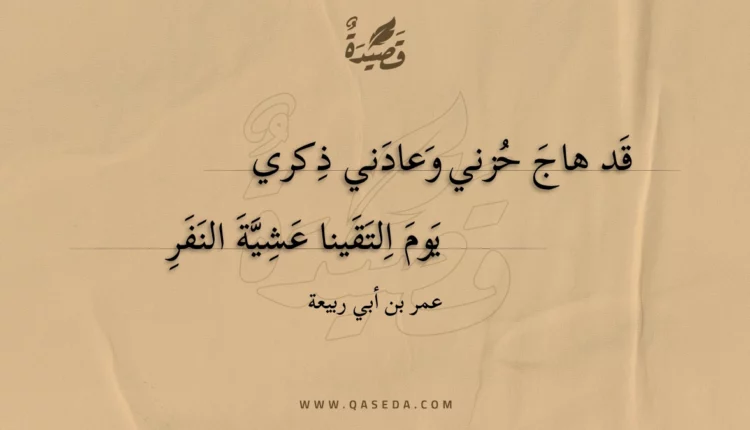 قَصِيدَةٌ
قَد هاجَ حُزني وَعادَني ذِكري
يَومَ اِلتَقَينا عَشِيَّةَ النَفَرِ
عمر بن أبي ربيعة
WWW.QASEDA.COM